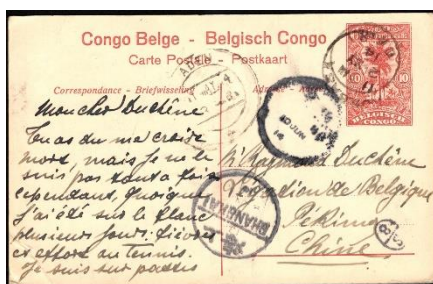 Congo Belge - Belgisch Congo
Carte Postale - Postkaart
Correspondance - Briefwisseling
ADEN
10 10
BELGISCH
CONGO
Mon cher Duchêne
Tu as du me croire
mort, mais je ne le
suis pas tout à fait
cependant, quoique
j'ai été sur le flanc
plusieurs jours: fièvre
et effort au tennis.
Je suis sur pattes
Mr Raymond Duchêne
Légation de Belgique
Pékin
Chine
SHANGHAI